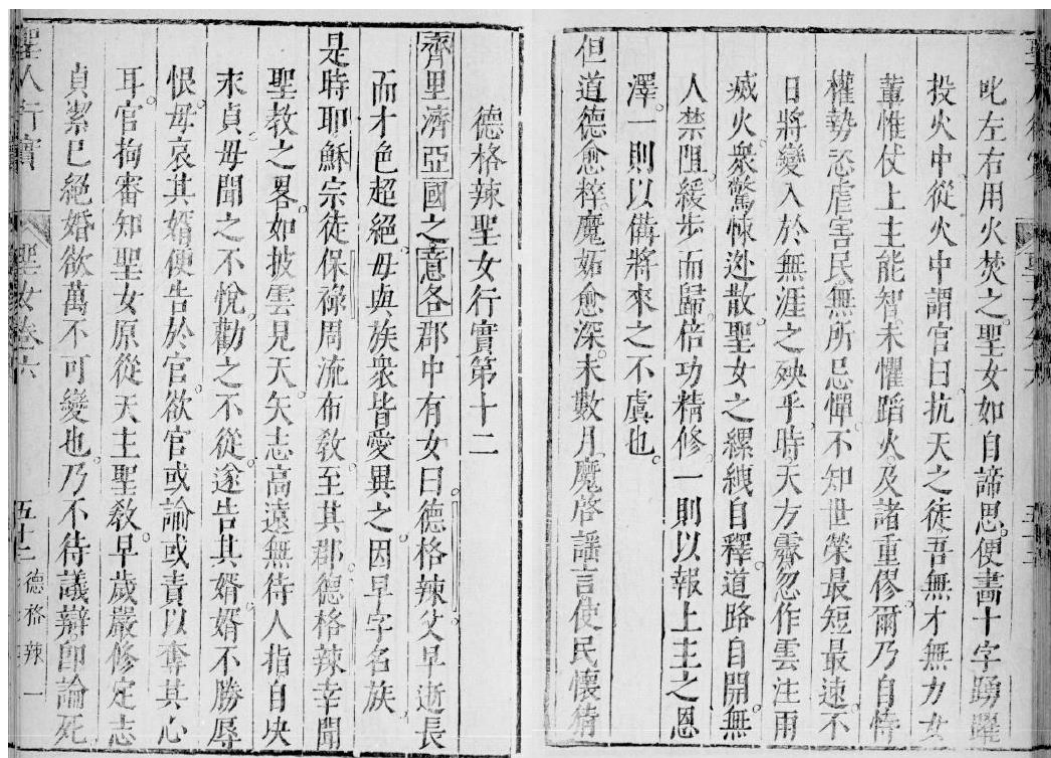 叱左右用火焚之聖女如自諦思便畵十字踴躍
投火中從火中謂官曰抗天之徒吾無才無力女
輩惟仗上主能智未懼蹈火及諸重僇爾乃自恃
權勢恣虐害民無所忌憚不知世榮最短最速不
日將變入於無涯之殃乎時天方霽忽作雲注雨
滅火衆驚悚迯散聖女之縲絏自釋道路自開無
人禁阻緩步而歸倍功精修一則以報上主之恩
澤一則以備將來之不虞也
但道德愈粹魔妬愈深未數月魔啓謡言使民懷猜
德格辣聖女行實第十二
齊里濟亞國之意各郡中有女曰德格辣父早逝長
而才色超絕毋與族衆皆愛異之因早字名族
是時耶穌宗徒保祿周流布敎至其郡德格辣幸聞
聖教之畧如披雲見天矢志高遠無待人指自决
末貞毋聞之不悅勸之不從遂告其婿婿不勝辱
恨毋哀其婿便告於官欲官或論或責以奪其心
耳官拘審知聖女原從天主聖敎早歲嚴修定志
貞潔已絕婚欲萬不可變也乃不待議辯即論死
聖人行實
聖女卷六
五十二
德格辣一